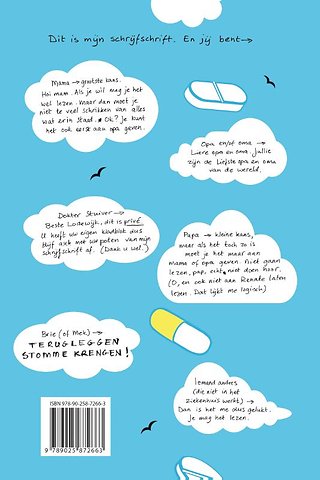 Dit is mijn schrijfschrift. En jij bent →
Mama → grootste kans.
Hoi mam. Als je wil mag je het
wel lezen. Maar dan moet je
niet te veel schrikken van alles
wat erin staat. Ok? Je kunt
het ook eerst aan opa geven.
Opa en/of oma →
Lieve opa en oma. Jullie
zijn de liefste opa en oma
van de wereld.
Dokter Stuiver →
Beste Lodewijk, dit is privé.
U heeft uw eigen kladblok dus
blijf asjt met uw poten van mijn
schrijfschrift af. (Dank u wel.)
Papa → kleine kans,
maar als het toch zo is
moet je het maar aan
mama of opa geven. Niet gaan
lezen, pap, echt niet doen hoor.
(O, en ook niet aan Renate laten
lezen. Dat lijkt me logisch)
Brie (of Mek) →
TERUGLEGGEN
STOMME KRENGEN!
Iemand anders
(die niet in het
ziekenhuis werkt) →
Dan is het me dus gelukt.
Je mag het lezen.
ISBN 978-90-258-7266-3
9 789025 872663